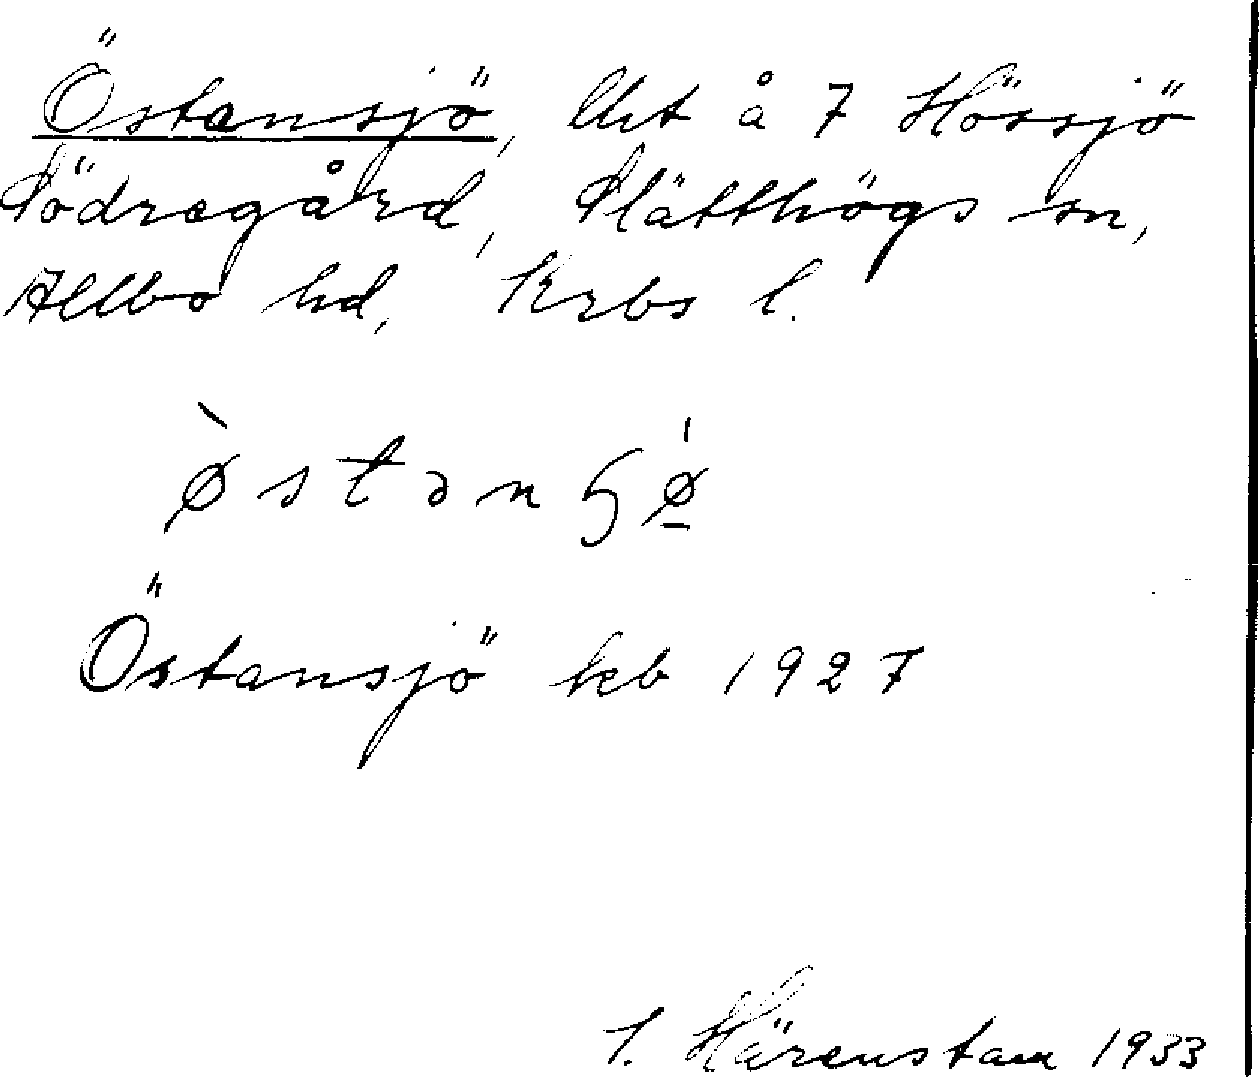 Östansjö, lht å 7 Hössjö
Södregård, Slätthögs sn,
Allbo hd, Krbs l.
ø̀stanʂǿ̠
Östansjö kb 1927
I. Härenstam 1933